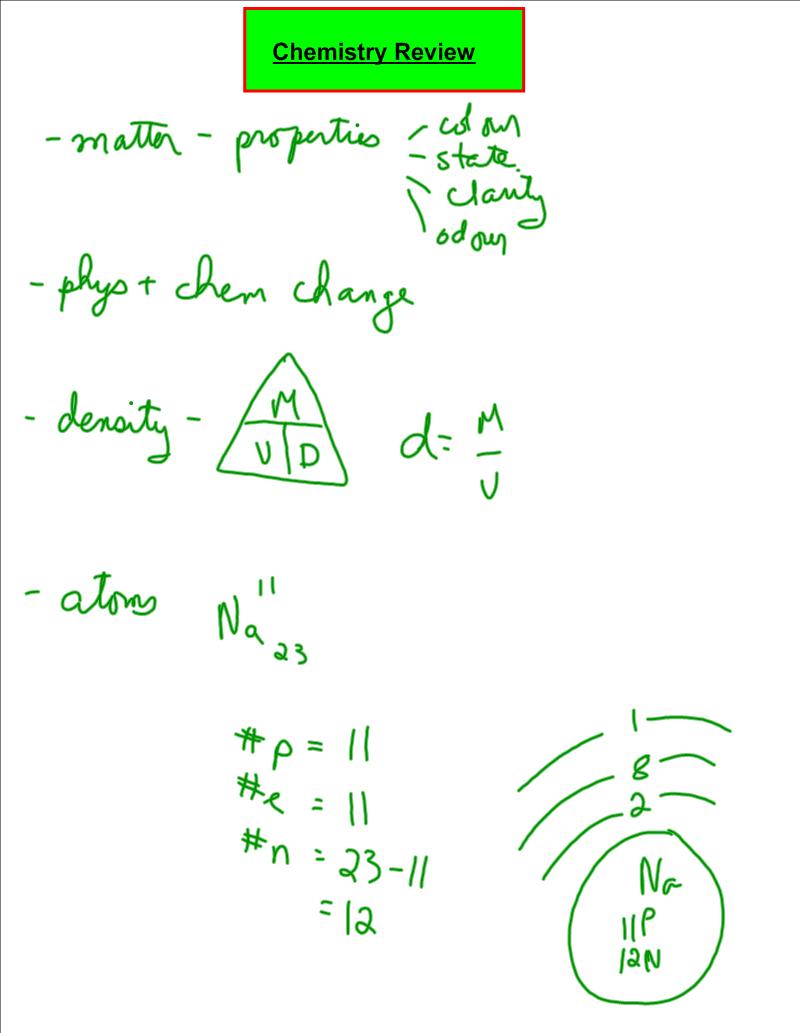 Chemistry Review
- matter - properties - colour
- state
clarity
odour
- phys + chem change
- density -
M
V D
d = M
V
- atoms Na 11
23
#p = 11
#e = 11
#n = 23-11
= 12
1
8
2
Na
11P
12N